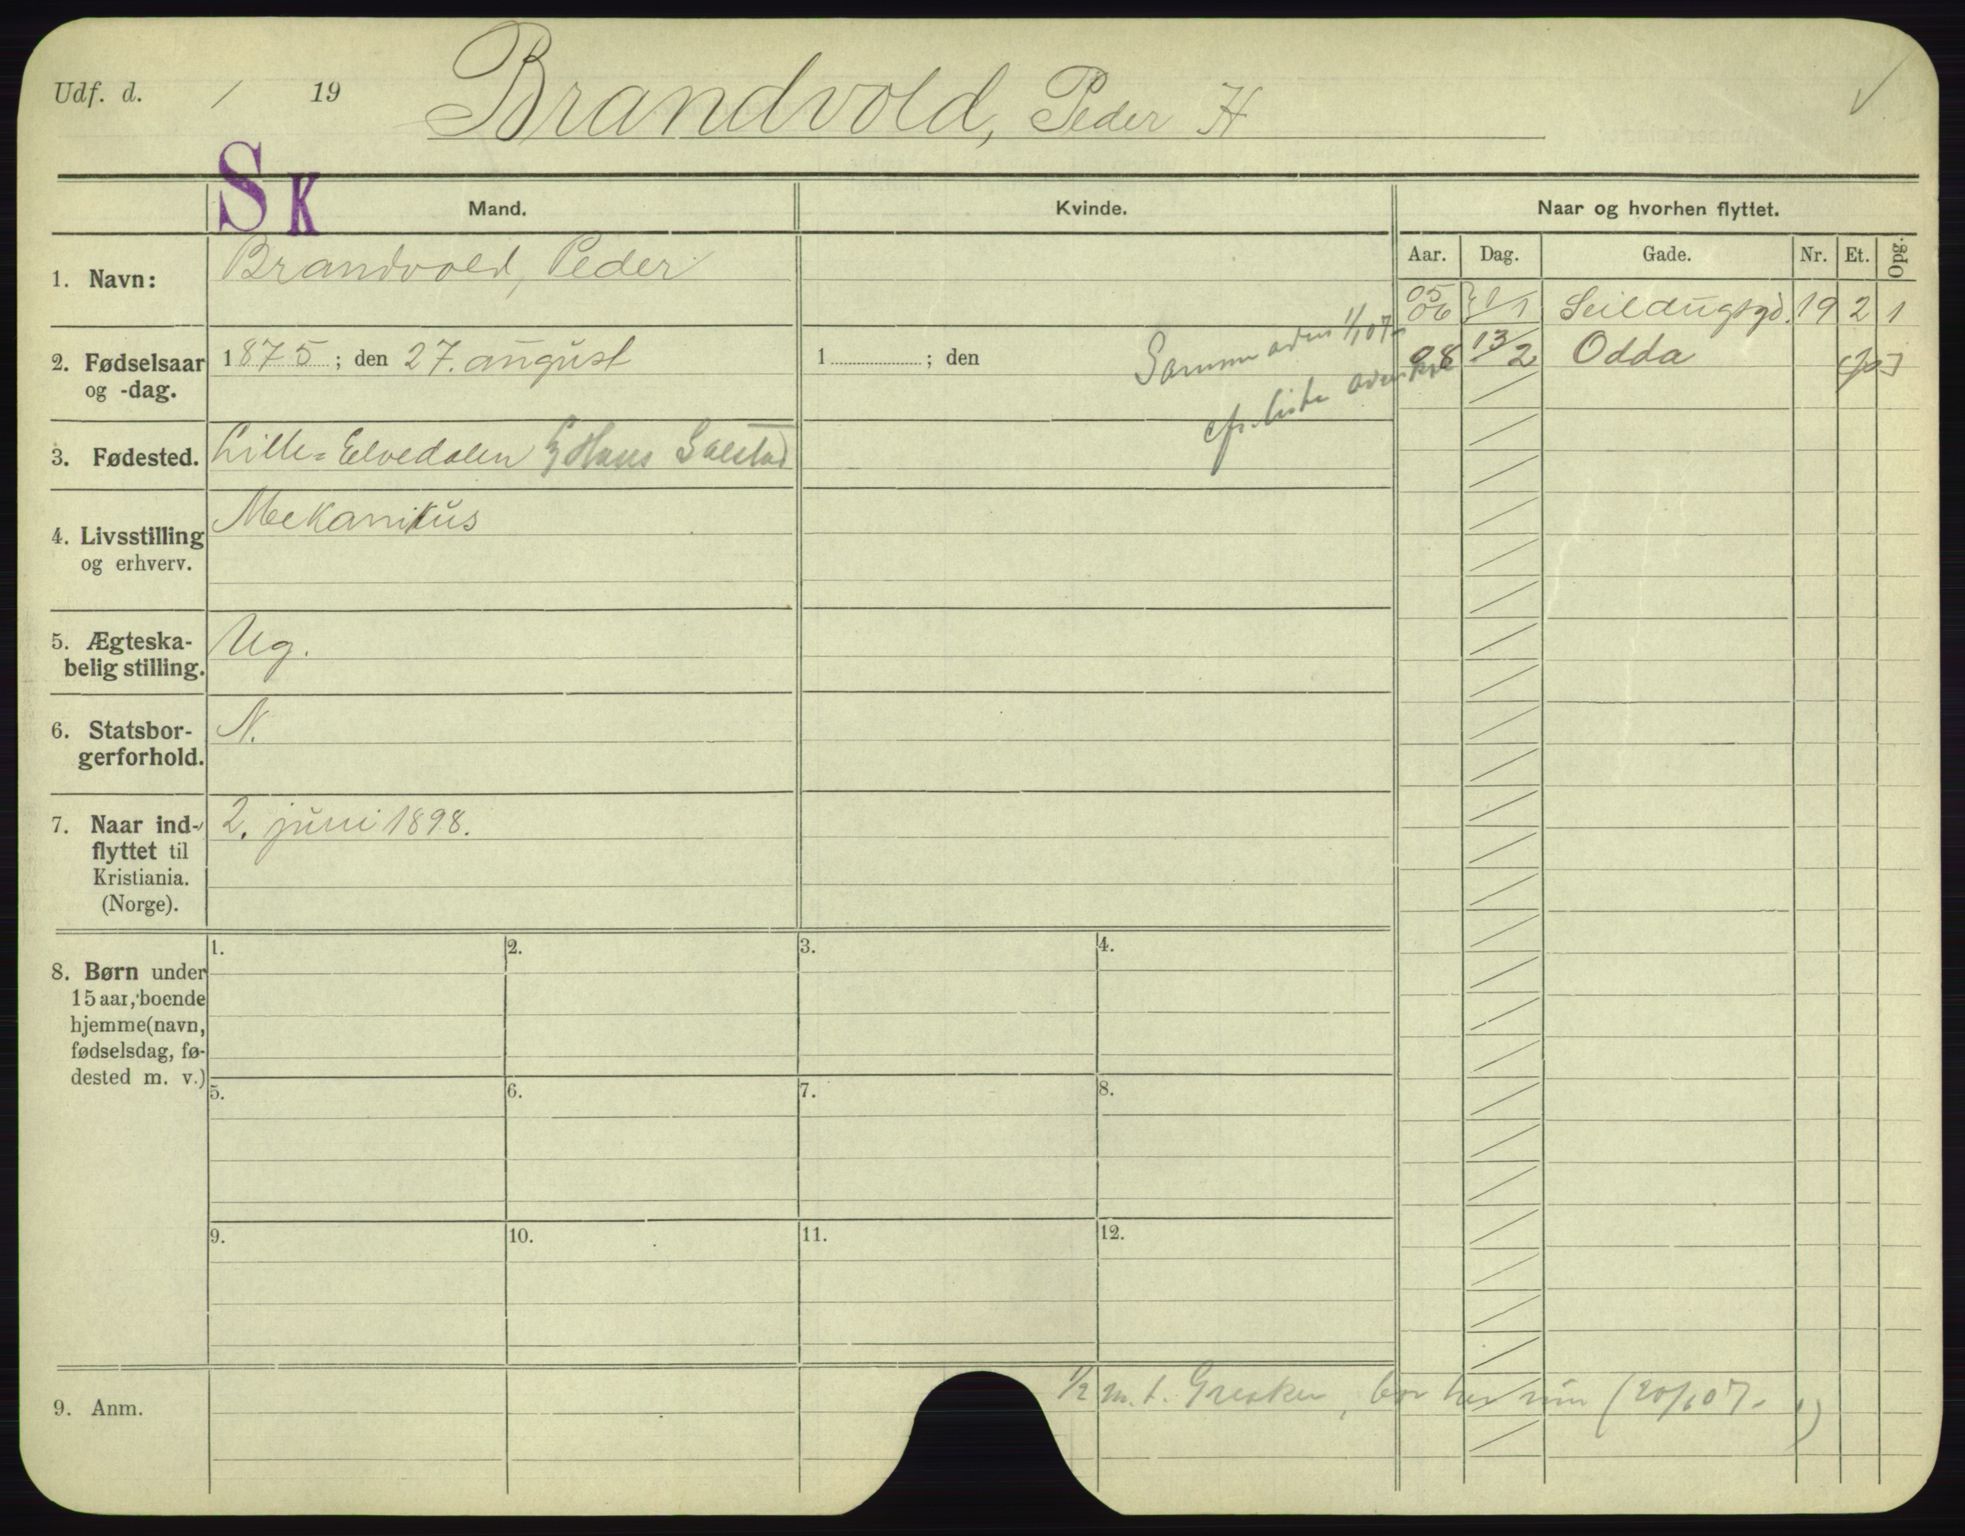 Udf. d. / 19
Brandvold, Peder H
S K
Mand. Kvinde. Naar og hvorhen flyttet.
Aar. Dag. Gade. Nr. Et. Opg.
1. Navn: Brandvold, Peder
05
06 1/1 Seildugsgd. 19 2 1
08 13/2 Odda
2. Fødselsaar
og -dag.
1875; den 27. august
1 ; den
Samme 1/1 07
cfr. liste
3. Fødested. Lille-Elvedalen Hans
4. Livsstilling
og erhverv.
Mekanikus
5. Ægteska-
belig stilling.
Ug.
6. Statsbor-
gerforhold.
N.
7. Naar ind-
flyttet til
Kristiania.
(Norge).
2. juni 1898.
8. Børn under
15 aar, boende
hjemme (navn,
fødselsdag, fø-
dested m. v.)
1. 2. 3. 4.
5. 6. 7. 8.
9. 10. 11. 12.
9. Anm.
1/2 m. t. bor her